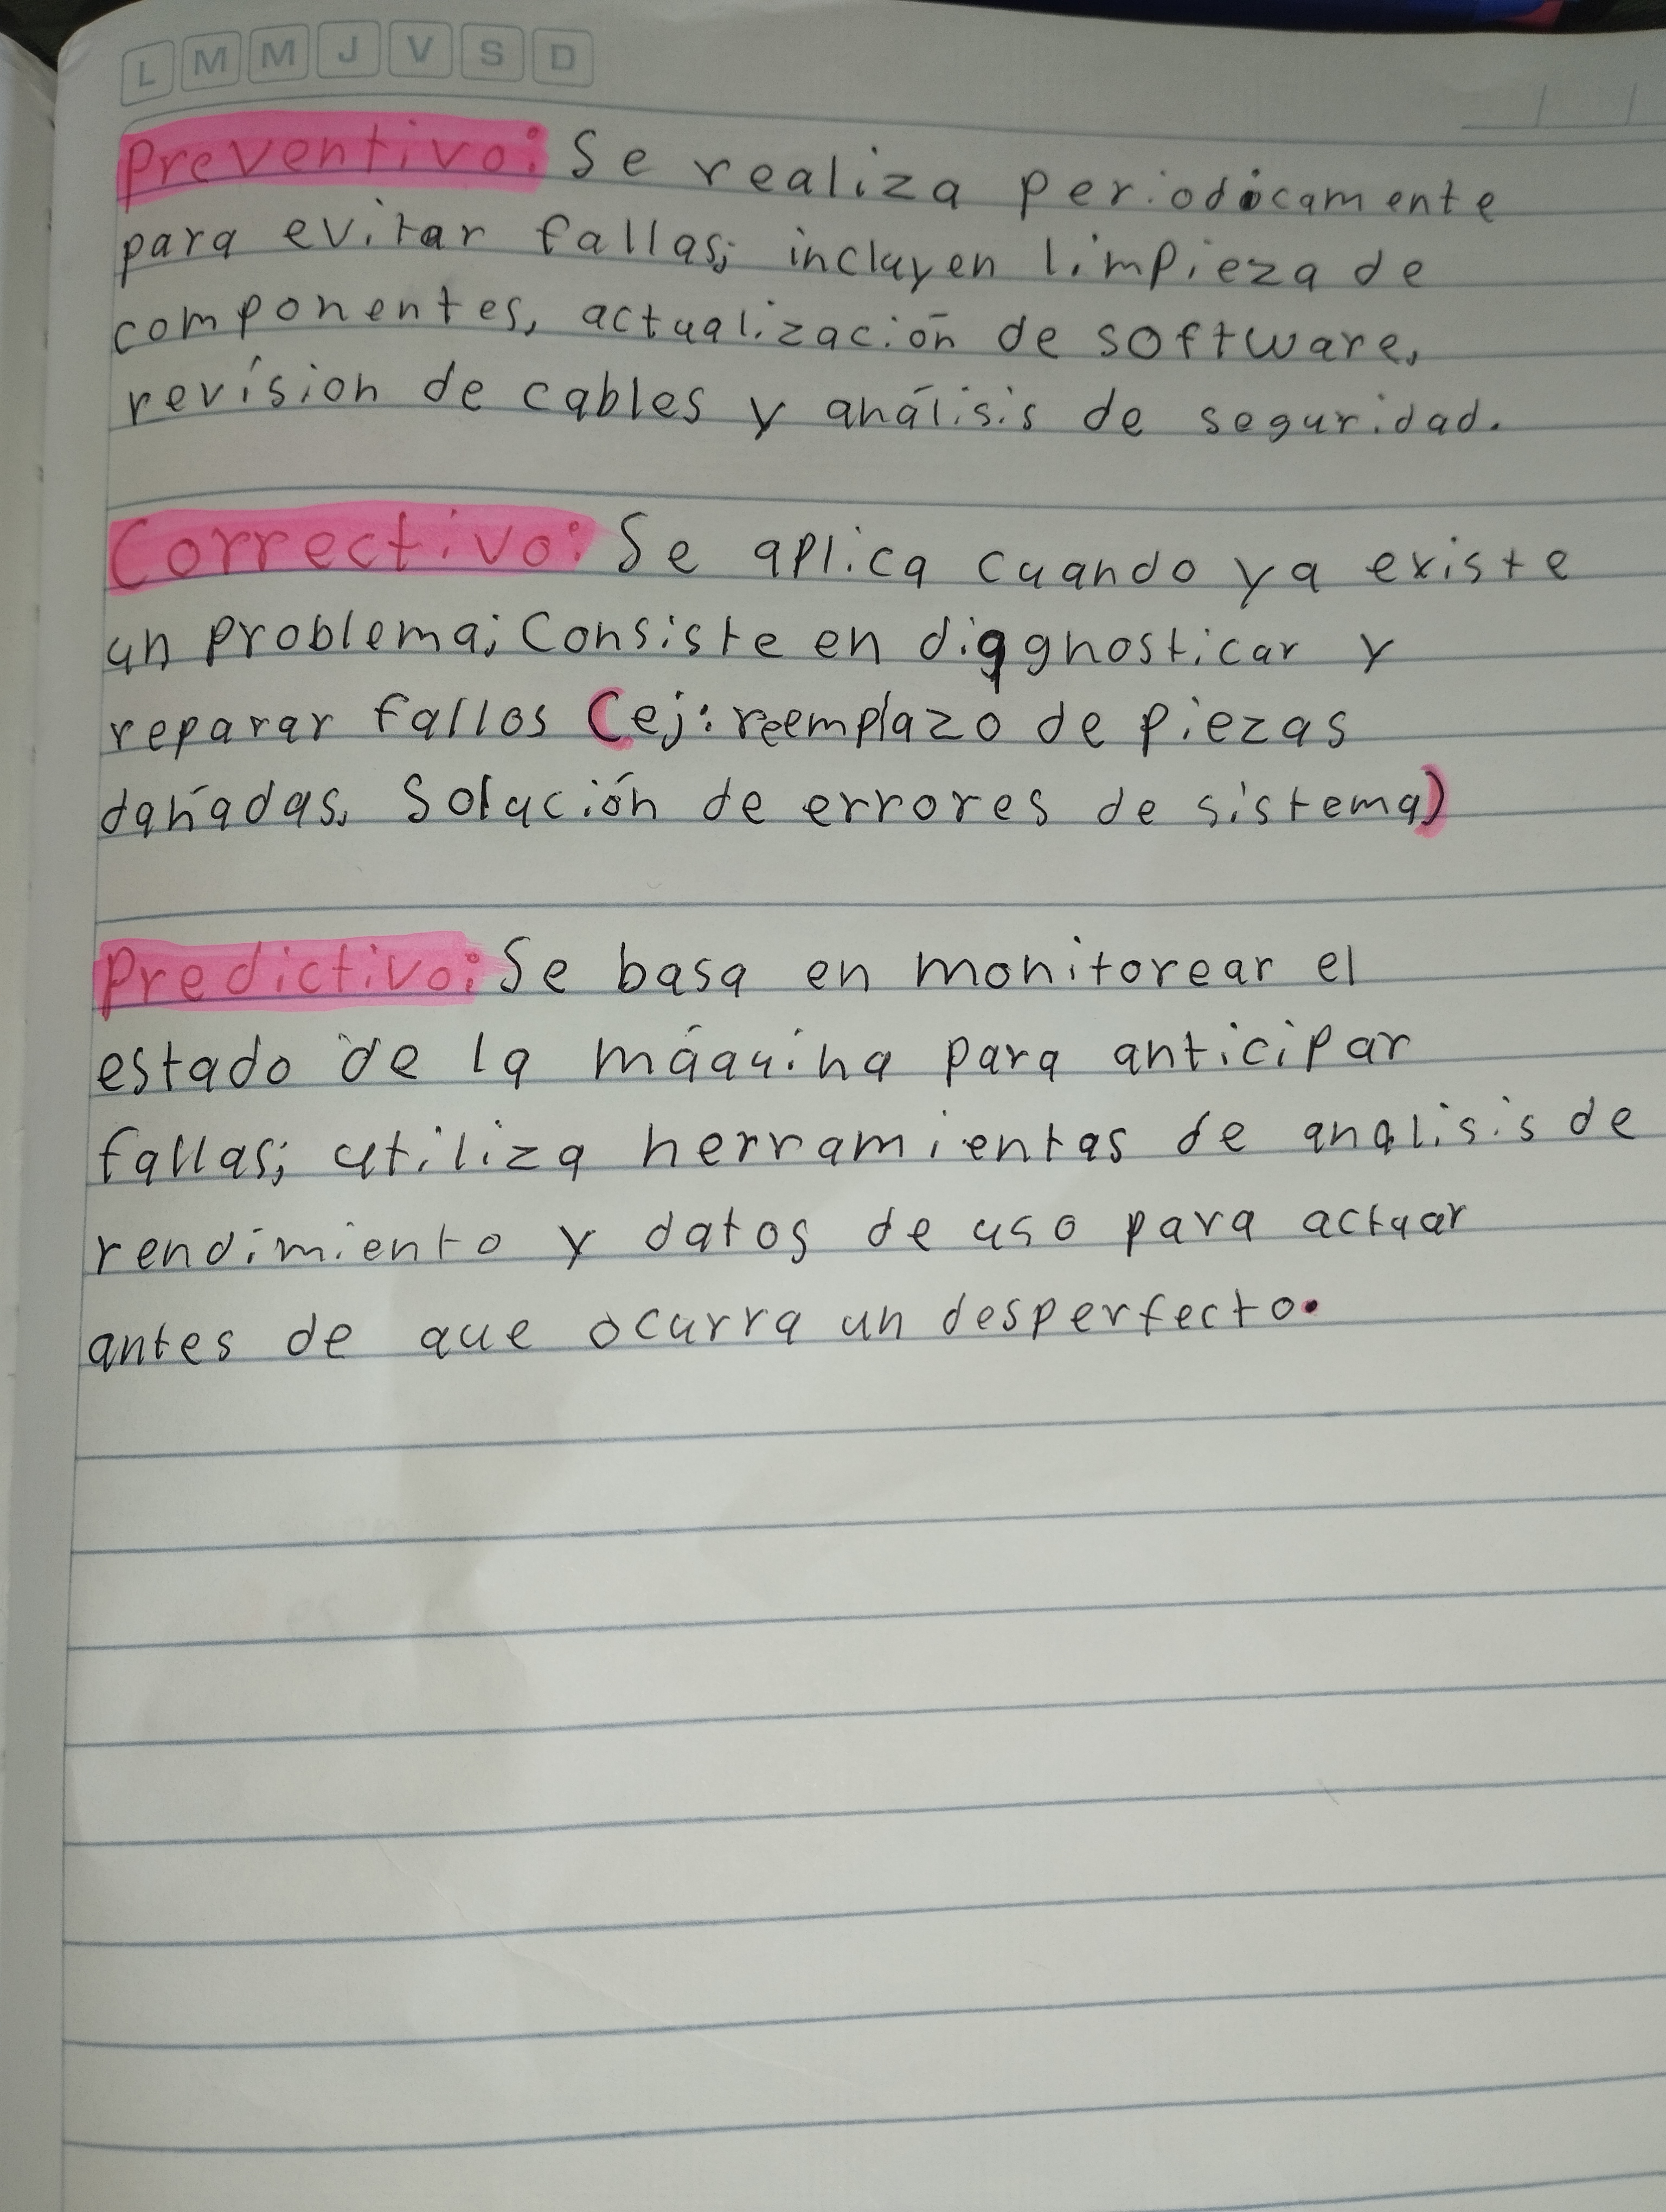 L M M J V S D
Preventivo: Se realiza periodicamente
para evitar fallas; incluyen limpieza de
componentes, actualización de software,
revisión de cables y análisis de seguridad.
Correctivo: Se aplica cuando ya existe
un problema; Consiste en diagnosticar y
reparar fallos (ej: reemplazo de piezas
dañadas, Solución de errores de sistema)
Predictivo: Se basa en monitorear el
estado de la máquina para anticipar
fallas; utiliza herramientas de analisis de
rendimiento y datos de uso para actuar
antes de que ocurra un desperfecto.